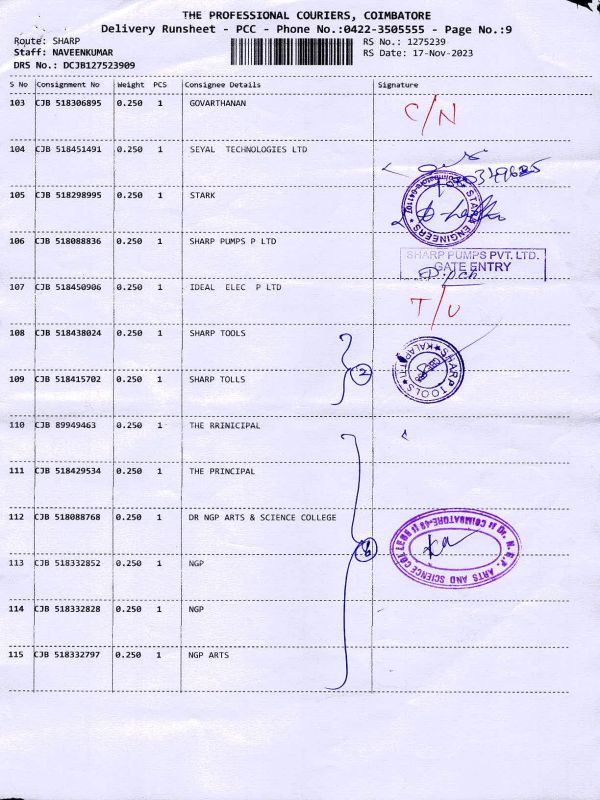 THE PROFESSIONAL COURIERS, COIMBATORE
Delivery Runsheet - PCC - Phone No.:0422-3505555 - Page No.:9
Route: SHARP RS No.: 1275239
Staff: NAVEENKUMAR RS Date: 17-Nov-2023
DRS No.: DCJB127523909
S No Consignment No Weight PCS Consignee Details Signature
103 CJB 518306895 0.250 1 GOVARTHANAN C/N
104 CJB 518451491 0.250 1 SEYAL TECHNOLOGIES LTD
105 CJB 518298995 0.250 1 STARK
STARK ENGINEERS
106 CJB 518088836 0.250 1 SHARP PUMPS P LTD
SHARP PUMPS PVT. LTD.
GATE ENTRY
107 CJB 518450906 0.250 1 IDEAL ELEC P LTD T/U
108 CJB 518438024 0.250 1 SHARP TOOLS
2
SHARP TOOLS ★ KALAPATTI ★
109 CJB 518415702 0.250 1 SHARP TOLLS
110 CJB 89949463 0.250 1 THE RRINICIPAL
111 CJB 518429534 0.250 1 THE PRINCIPAL
112 CJB 518088768 0.250 1 DR NGP ARTS & SCIENCE COLLEGE
6
Dr. N.G.P. ARTS AND SCIENCE COLLEGE COIMBATORE-48
113 CJB 518332852 0.250 1 NGP
114 CJB 518332828 0.250 1 NGP
115 CJB 518332797 0.250 1 NGP ARTS